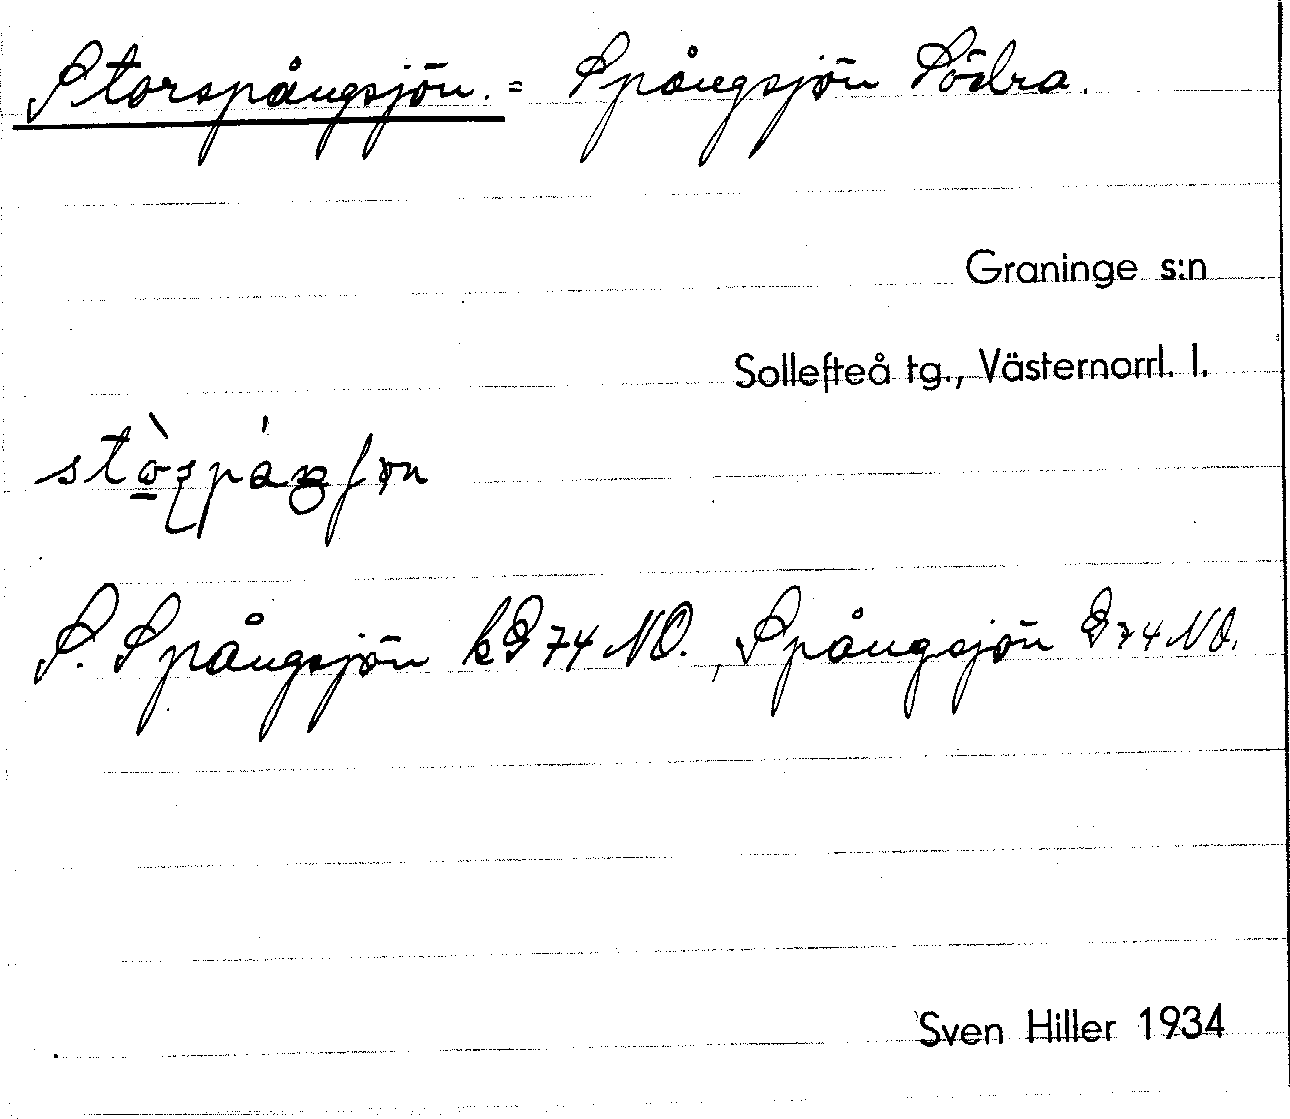 Storspångsjön. = Spångsjön Södra.
Graninge s:n
Sollefteå tg., Västernorrl. l.
S. Spångsjön k G 74 NO., Spångsjön G 74 NO.
Sven Hiller 1934